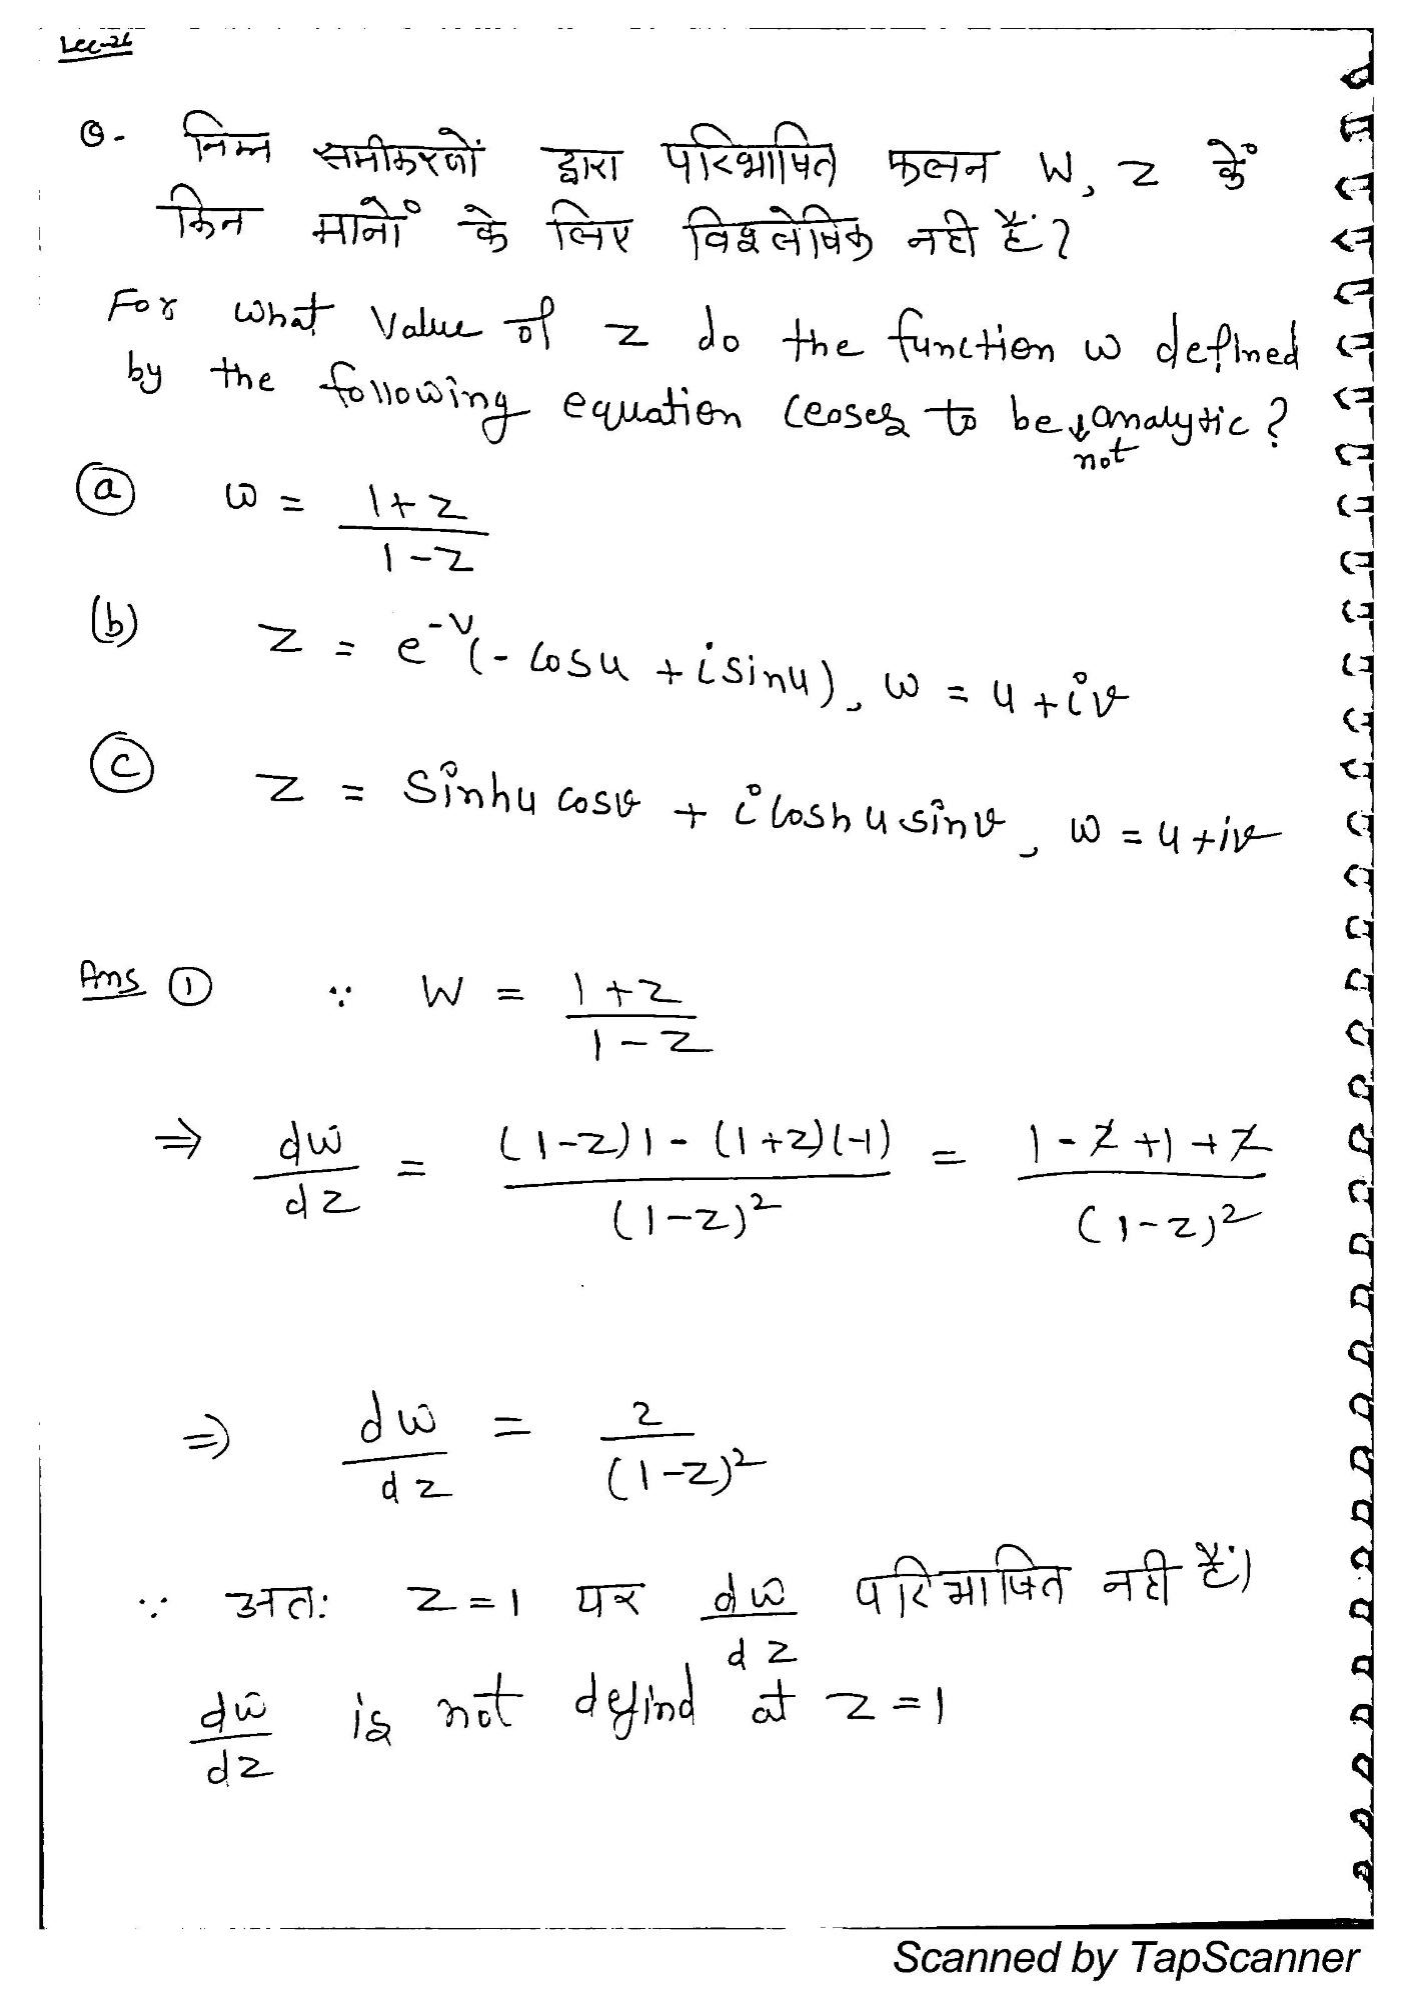 Lec-26
Q- निम्न समीकरणों द्वारा परिभाषित फलन W, z कें
किन मानों के लिए विश्लेषिक नही हैं?
For what value of z do the function w defined
by the following equation ceases to be ↓ analytic?
not
(a) w = (1+z)/(1-z)
(b) z = e^-v(-cosu + isinu), w = u+iv
(c) z = Sinhu cosv + i coshu sinv, w = u+iv
Ans (1) ∵ W = (1+z)/(1-z)
⇒ dw/dz = ((1-z)1 - (1+z)(-1))/(1-z)² = (1-z+1+z)/(1-z)²
⇒ dw/dz = 2/(1-z)²
∵ अतः z=1 पर dw/dz परिभाषित नही हैं।
dw/dz is not defind at z=1
Scanned by TapScanner